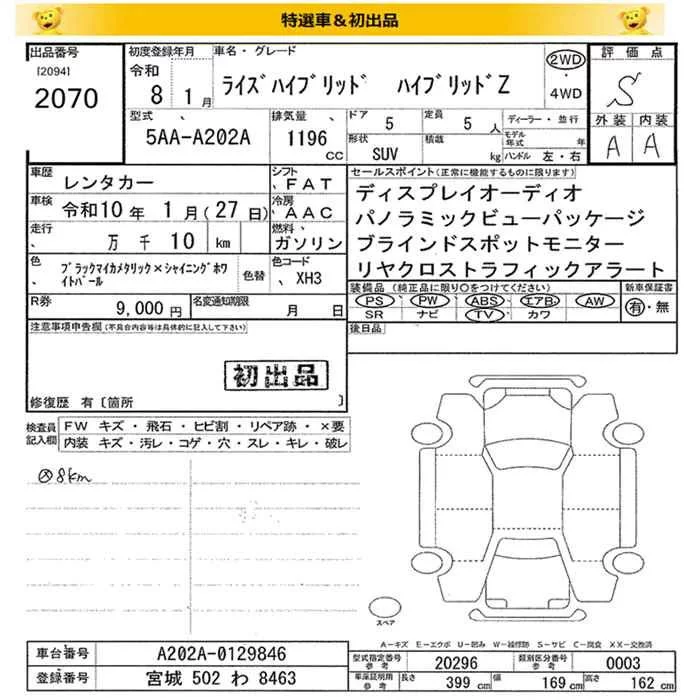 特選車＆初出品
出品番号
[2094]
2070
初度登録年月
令和
8 1月
車名・グレード
ﾗｲｽﾞﾊｲﾌﾞﾘｯﾄﾞ ﾊｲﾌﾞﾘｯﾄﾞZ
2WD
・
4WD
評価点
S
外装 内装
A A
型式
5AA-A202A
排気量
1196
CC
ドア
5
定員
5 人
形状
SUV
積載
kg
ディーラー・並行
モデル年式 年
ハンドル 左・右
車歴
レンタカー
シフト
FAT
車検
令和10年 1月(27日)
冷房
AAC
走行
万 千 10 km
燃料
ガソリン
色
ﾌﾞﾗｯｸﾏｲｶﾒﾀﾘｯｸ×ｼｬｲﾆﾝｸﾞﾎﾜｲﾄﾊﾟｰﾙ
色替
色コード
XH3
R券
9,000円
名変通知期限
月 日
セールスポイント(正常に機能するものに限ります)
ディスプレイオーディオ
パノラミックビューパッケージ
ブラインドスポットモニター
リヤクロストラフィックアラート
装備品(純正品に限り○をつけてください)
PS PW ABS エアB AW
SR ナビ TV カワ
新車保証書
有・無
後日品
注意事項申告欄(不具合内容等は具体的に記入して下さい)
初出品
修復歴 有〔箇所 〕
検査員記入欄
FW キズ・飛石・ヒビ割・リペア跡・×要
内装 キズ・汚レ・コゲ・穴・スレ・キレ・破レ
8km
スペア
A－キズ E－エクボ U－凹み W－補修跡 S－サビ C－腐食 XX－交換済
車台番号
A202A-0129846
登録番号
宮城 502 わ 8463
型式指定番号
参考
20296
類別区分番号
参考
0003
車検証明用
参考
長さ
399 cm
幅
169 cm
高さ
162 cm